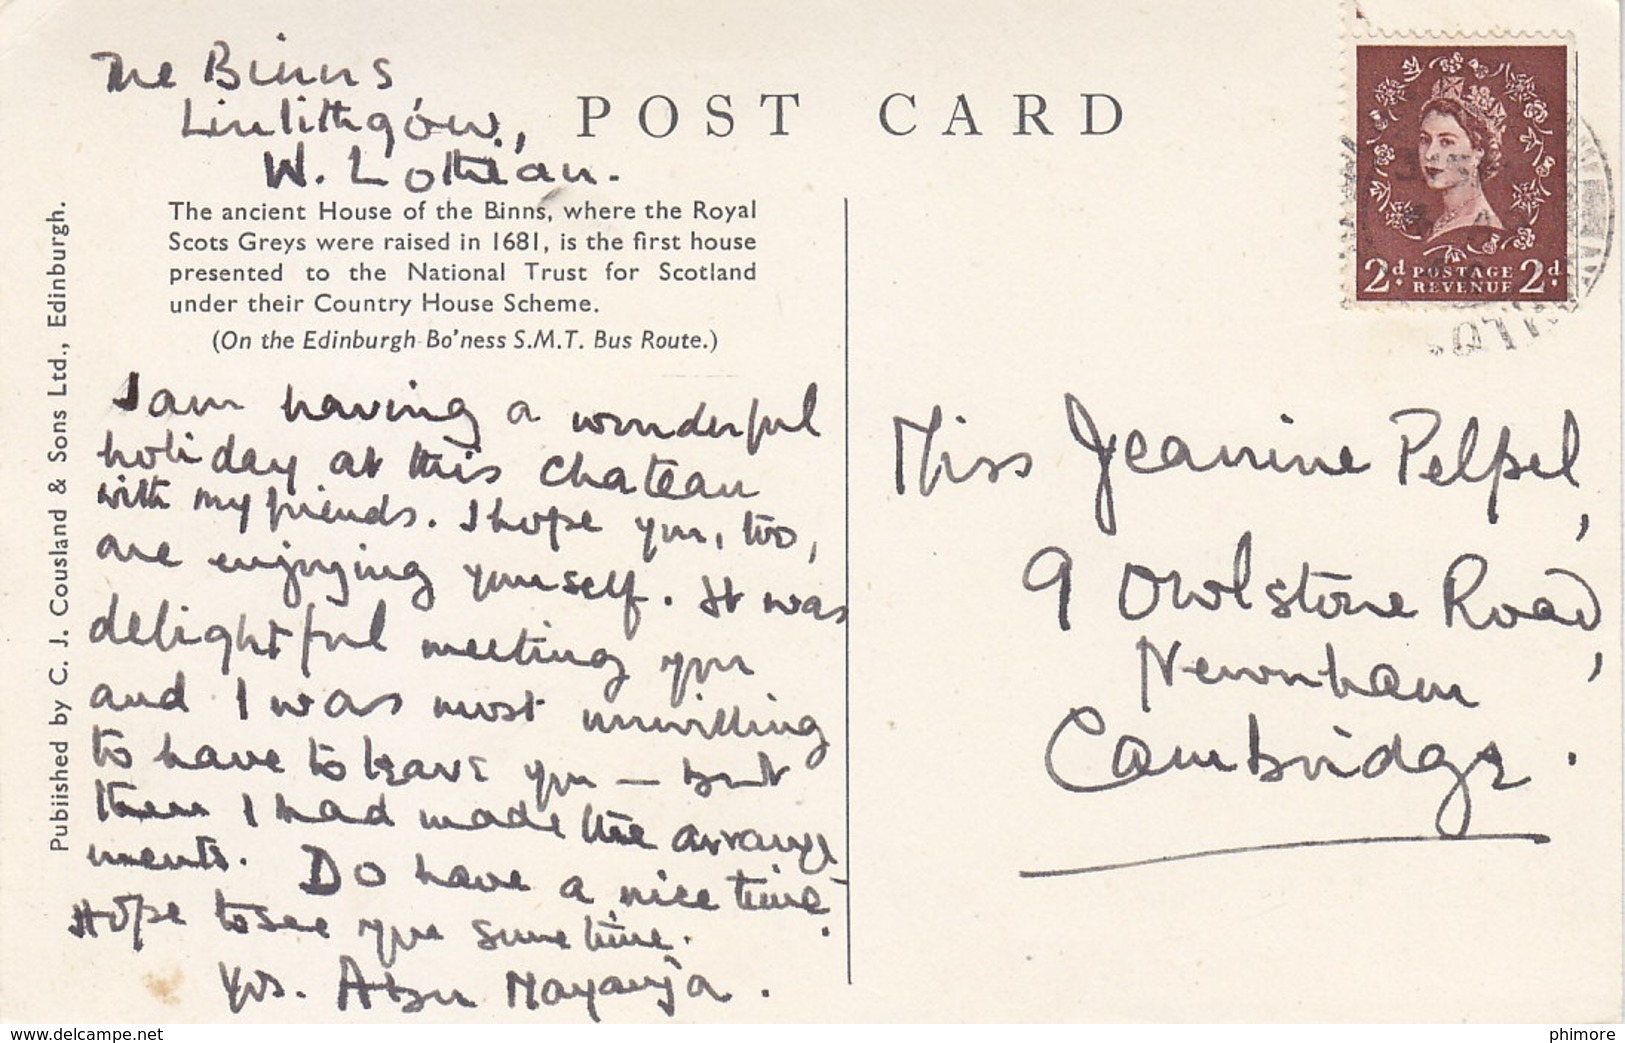 The Binns
Linlithgow,
W. Lothian.
POST CARD
The ancient House of the Binns, where the Royal
Scots Greys were raised in 1681, is the first house
presented to the National Trust for Scotland
under their Country House Scheme.
(On the Edinburgh-Bo'ness S.M.T. Bus Route.)
Published by C. J. Cousland & Sons Ltd., Edinburgh.
I am having a wonderful
holiday at this chateau
with my friends. I hope you, too,
are enjoying yourself. It was
delightful meeting you
and I was most unwilling
to have to leave you — but
then I had made the arrange
ments. Do have a nice time.
Hope to see you sometime.
Yrs. Abu Mayanja.
2d. POSTAGE 2d.
REVENUE
Miss Jeanine Pelpel,
9 Owlstone Road,
Newnham
Cambridge.
www.delcampe.net
phimore